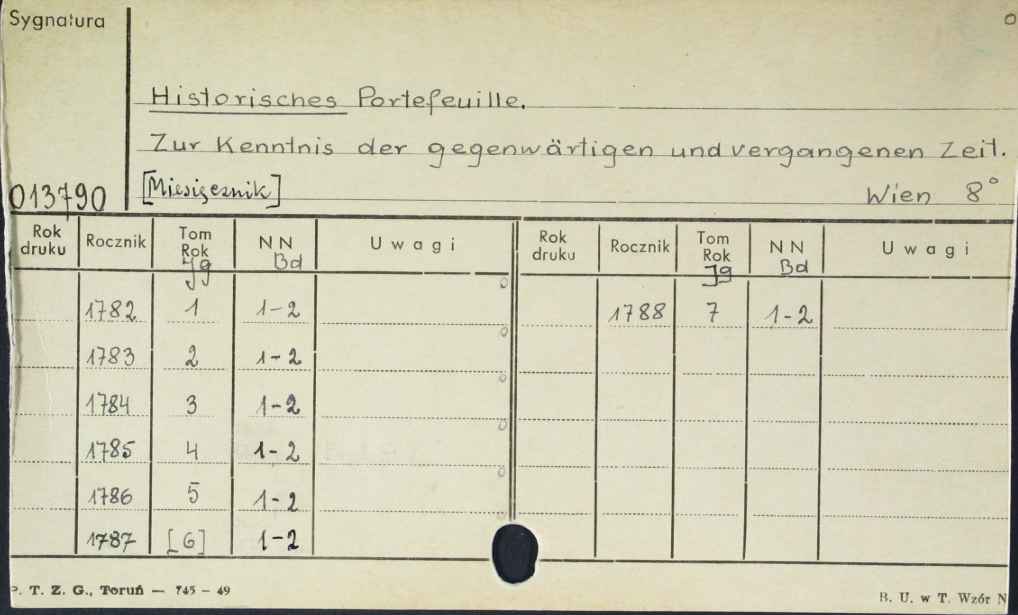 Sygnatura
Historisches Portefeuille.
Zur Kenntnis der gegenwärtigen und vergangenen Zeit.
013790 [Miesięcznik] Wien 8°
Rok druku Rocznik Tom Rok Jg NN Bd Uwagi Rok druku Rocznik Tom Rok Jg NN Bd Uwagi
1782 1 1-2 1788 7 1-2
1783 2 1-2
1784 3 1-2
1785 4 1-2
1786 5 1-2
1787 [6] 1-2
P. T. Z. G., Toruń — 745 – 49 B. U. w T. Wzór N